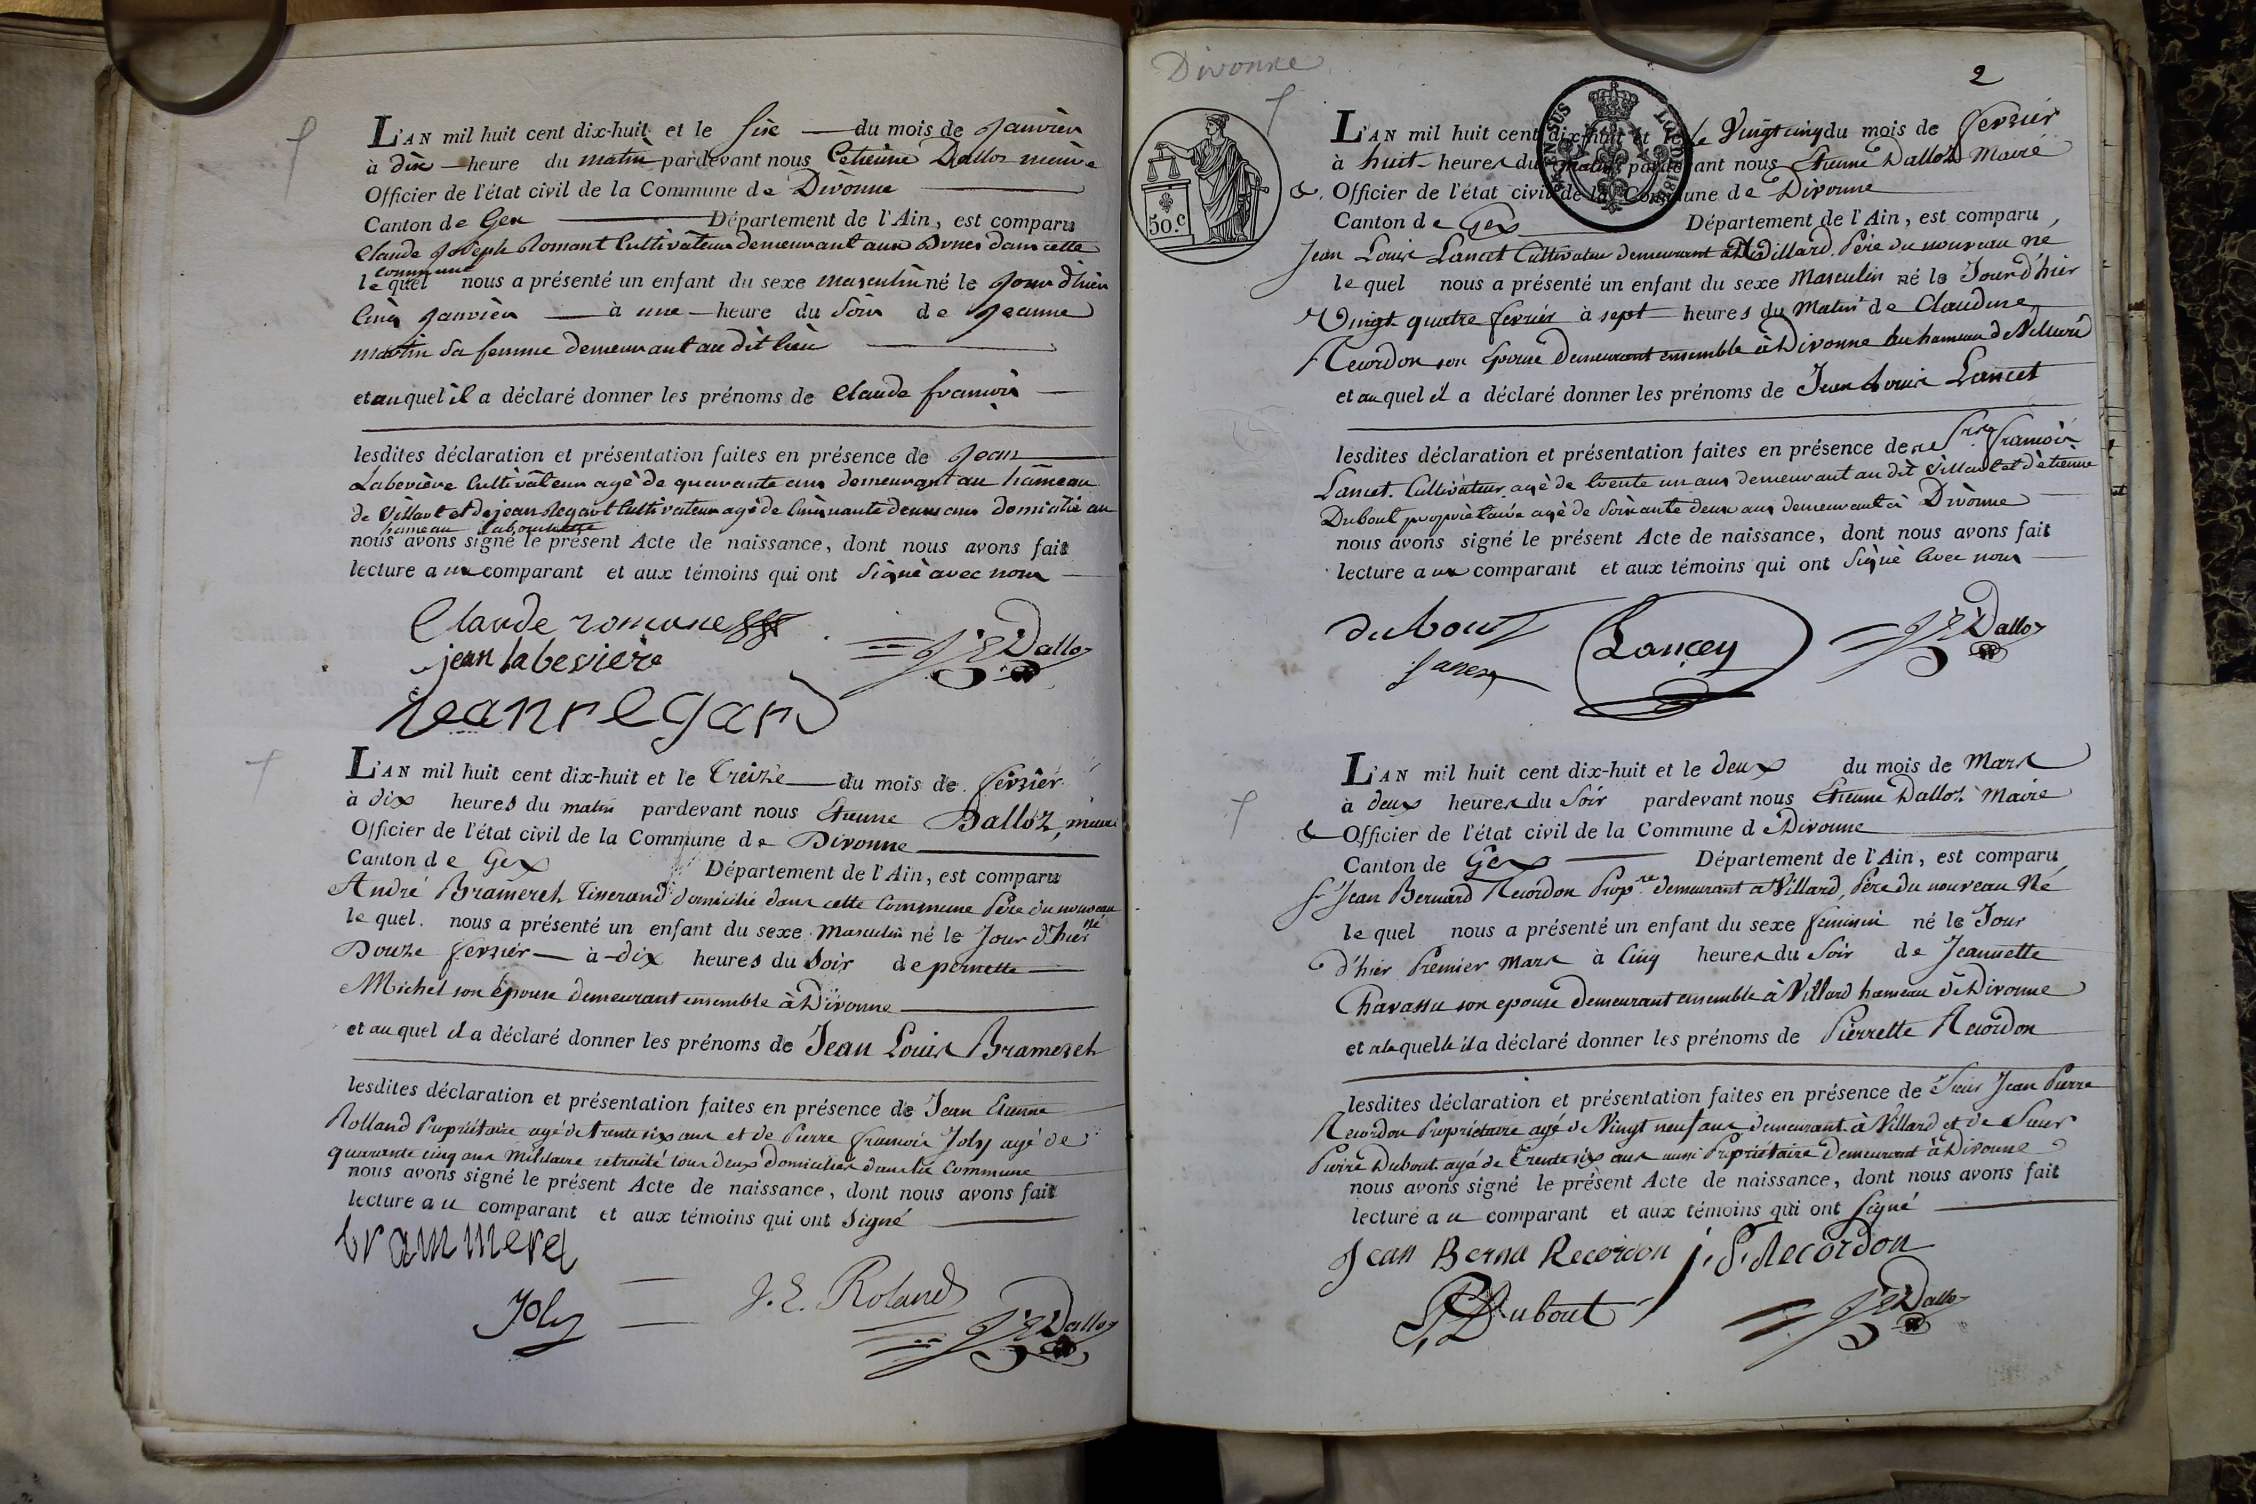 L'AN mil huit cent dix-huit et le Six du mois de Janvier
à dix heure du matin pardevant nous Etienne Dalloz maire
Officier de l'état civil de la Commune de Divonne
Canton de Gex Département de l'Ain, est comparu
Claude Joseph Romant Cultivateur demeurant aux dans cette
commune
le quel nous a présenté un enfant du sexe masculin né le Jour d'hier
Cinq Janvier à une heure du Soir de Jeanne
martin sa femme demeurant au dit lieu
et au quel il a déclaré donner les prénoms de Claude françois
lesdites déclaration et présentation faites en présence de Jean
Labevière Cultivateur agé de quarante ans demeurant au hameau
de Villard et de jean Regard Cultivateur agé de Cinquante deux ans domicilié au
hameau
nous avons signé le présent Acte de naissance, dont nous avons fait
lecture au comparant et aux témoins qui ont Signé avec nous
Claude
jean labeviere
J E Dalloz
Jean regard
L'AN mil huit cent dix-huit et le Treize du mois de fevrier
à dix heures du matin pardevant nous Etienne Dalloz, maire
Officier de l'état civil de la Commune de Divonne
Canton de Gex Département de l'Ain, est comparu
André Brameret Tisserand domicilié dans cette Commune Père du nouveau
né
le quel nous a présenté un enfant du sexe Masculin né le Jour d'hier
Douze fevrier à dix heures du Soir de pernette
Michel son épouse demeurant ensemble à Divonne
et au quel il a déclaré donner les prénoms de Jean Louis Brameret
lesdites déclaration et présentation faites en présence de Jean Etienne
Rolland Propriétaire agé de trente six ans et de Pierre françois Joly agé de
quarante cinq ans Militaire retraité tous deux domiciliés dans la Commune
nous avons signé le présent Acte de naissance, dont nous avons fait
lecture au comparant et aux témoins qui ont Signé
brammeret
Joly
J. E. Roland
J E Dalloz
Divonne
2
50.C
L'AN mil huit cent dix-huit et le Vingt cinq du mois de fevrier
à huit heures du matin pardevant nous Etienne Dalloz Maire
& Officier de l'état civil de la Commune de Divonne
Canton de Gex Département de l'Ain, est comparu
Jean Louis Lancet Cultivateur demeurant à Villard Père du nouveau né
le quel nous a présenté un enfant du sexe Masculin né le Jour d'hier
Vingt quatre fevrier à sept heures du Matin de Claudine
Recordon son épouse demeurant ensemble à Divonne au hameau de Villard
et au quel il a déclaré donner les prénoms de Jean Louis Lancet
lesdites déclaration et présentation faites en présence de françois
Lancet Cultivateur agé de trente un ans demeurant au dit Villard et d'étienne
Dubout propriétaire agé de Soixante deux ans demeurant à Divonne
nous avons signé le présent Acte de naissance, dont nous avons fait
lecture au comparant et aux témoins qui ont Signé avec nous
dubout
Lancey
J E Dalloz
L'AN mil huit cent dix-huit et le deux du mois de Mars
à deux heures du Soir pardevant nous Etienne Dalloz Maire
& Officier de l'état civil de la Commune de Divonne
Canton de Gex Département de l'Ain, est comparu
Sr Jean Bernard Recordon Propre demeurant à Villard, Père du nouveau Né
le quel nous a présenté un enfant du sexe feminin né le Jour
d'hier Premier Mars à Cinq heures du Soir de Jeannette
Chavassu son epouse demeurant ensemble à Villard hameau de Divonne
et a laquelle il a déclaré donner les prénoms de Pierrette Recordon
lesdites déclaration et présentation faites en présence de Sieur Jean Pierre
Recordon Propriétaire agé de Vingt neuf ans demeurant à Villard et de Sieur
Pierre Dubout agé de Trente six ans aussi Propriétaire demeurant à Divonne
nous avons signé le présent Acte de naissance, dont nous avons fait
lecture au comparant et aux témoins qui ont Signé
Jean Berna Recordon j. P. Recordon
P Dubout
J E Dalloz